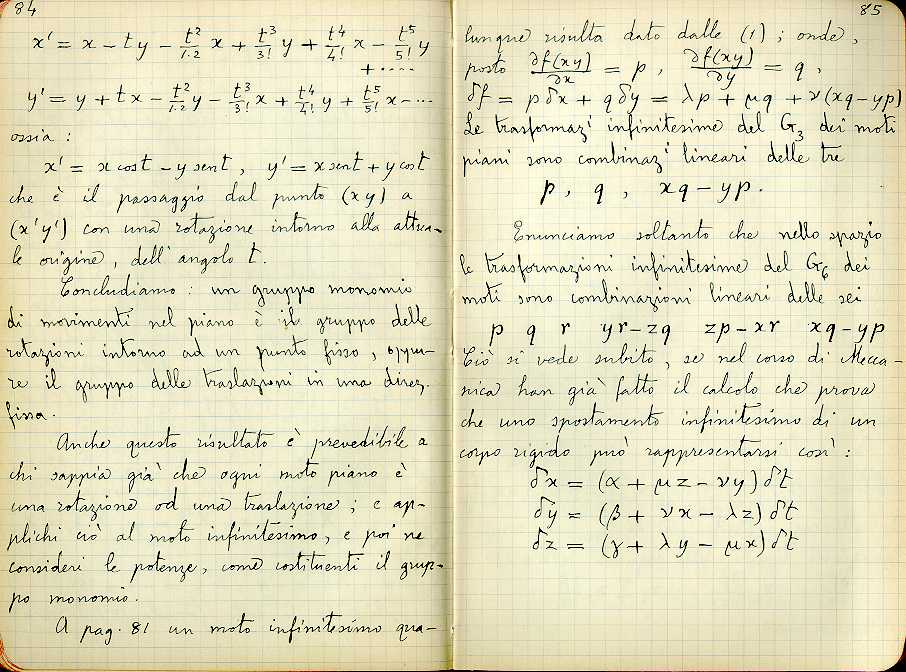 84
x' = x - ty - t²/1·2 x + t³/3! y + t⁴/4! x - t⁵/5! y
+ ····
y' = y + tx - t²/1·2 y - t³/3! x + t⁴/4! y + t⁵/5! x - ···
ossia :
x' = x cost - y sent , y' = x sent + y cost
che è il passaggio dal punto (xy) a
(x'y') con una rotazione intorno alla attua-
le origine, dell'angolo t.
Concludiamo : un gruppo monomio
di movimenti nel piano è il gruppo delle
rotazioni intorno ad un punto fisso, oppu-
re il gruppo delle traslazioni in una direz.
fissa.
Anche questo risultato è prevedibile a
chi sappia già che ogni moto piano è
una rotazione od una traslazione ; e ap-
plichi ciò al moto infinitesimo, e poi ne
consideri le potenze, come costituenti il grup-
po monomio.
A pag. 81 un moto infinitesimo qua-
85
lunque risulta dato dalle (1) ; onde,
posto ∂f(xy)/∂x = p , ∂f(xy)/∂y = q ,
δf = pδx + qδy = λp + μq + ν(xq-yp)
Le trasformazⁱ infinitesime del G₃ dei moti
piani sono combinazⁱ lineari delle tre
p , q , xq - yp .
Enunciamo soltanto che nello spazio
le trasformazioni infinitesime del G₆ dei
moti sono combinazioni lineari delle sei
p q r yr-zq zp-xr xq-yp
Ciò si vede subito, se nel corso di Mecca-
nica han già fatto il calcolo che prova
che uno spostamento infinitesimo di un
corpo rigido può rappresentarsi così :
δx = (α + μz - νy) δt
δy = (β + νx - λz) δt
δz = (γ + λy - μx) δt